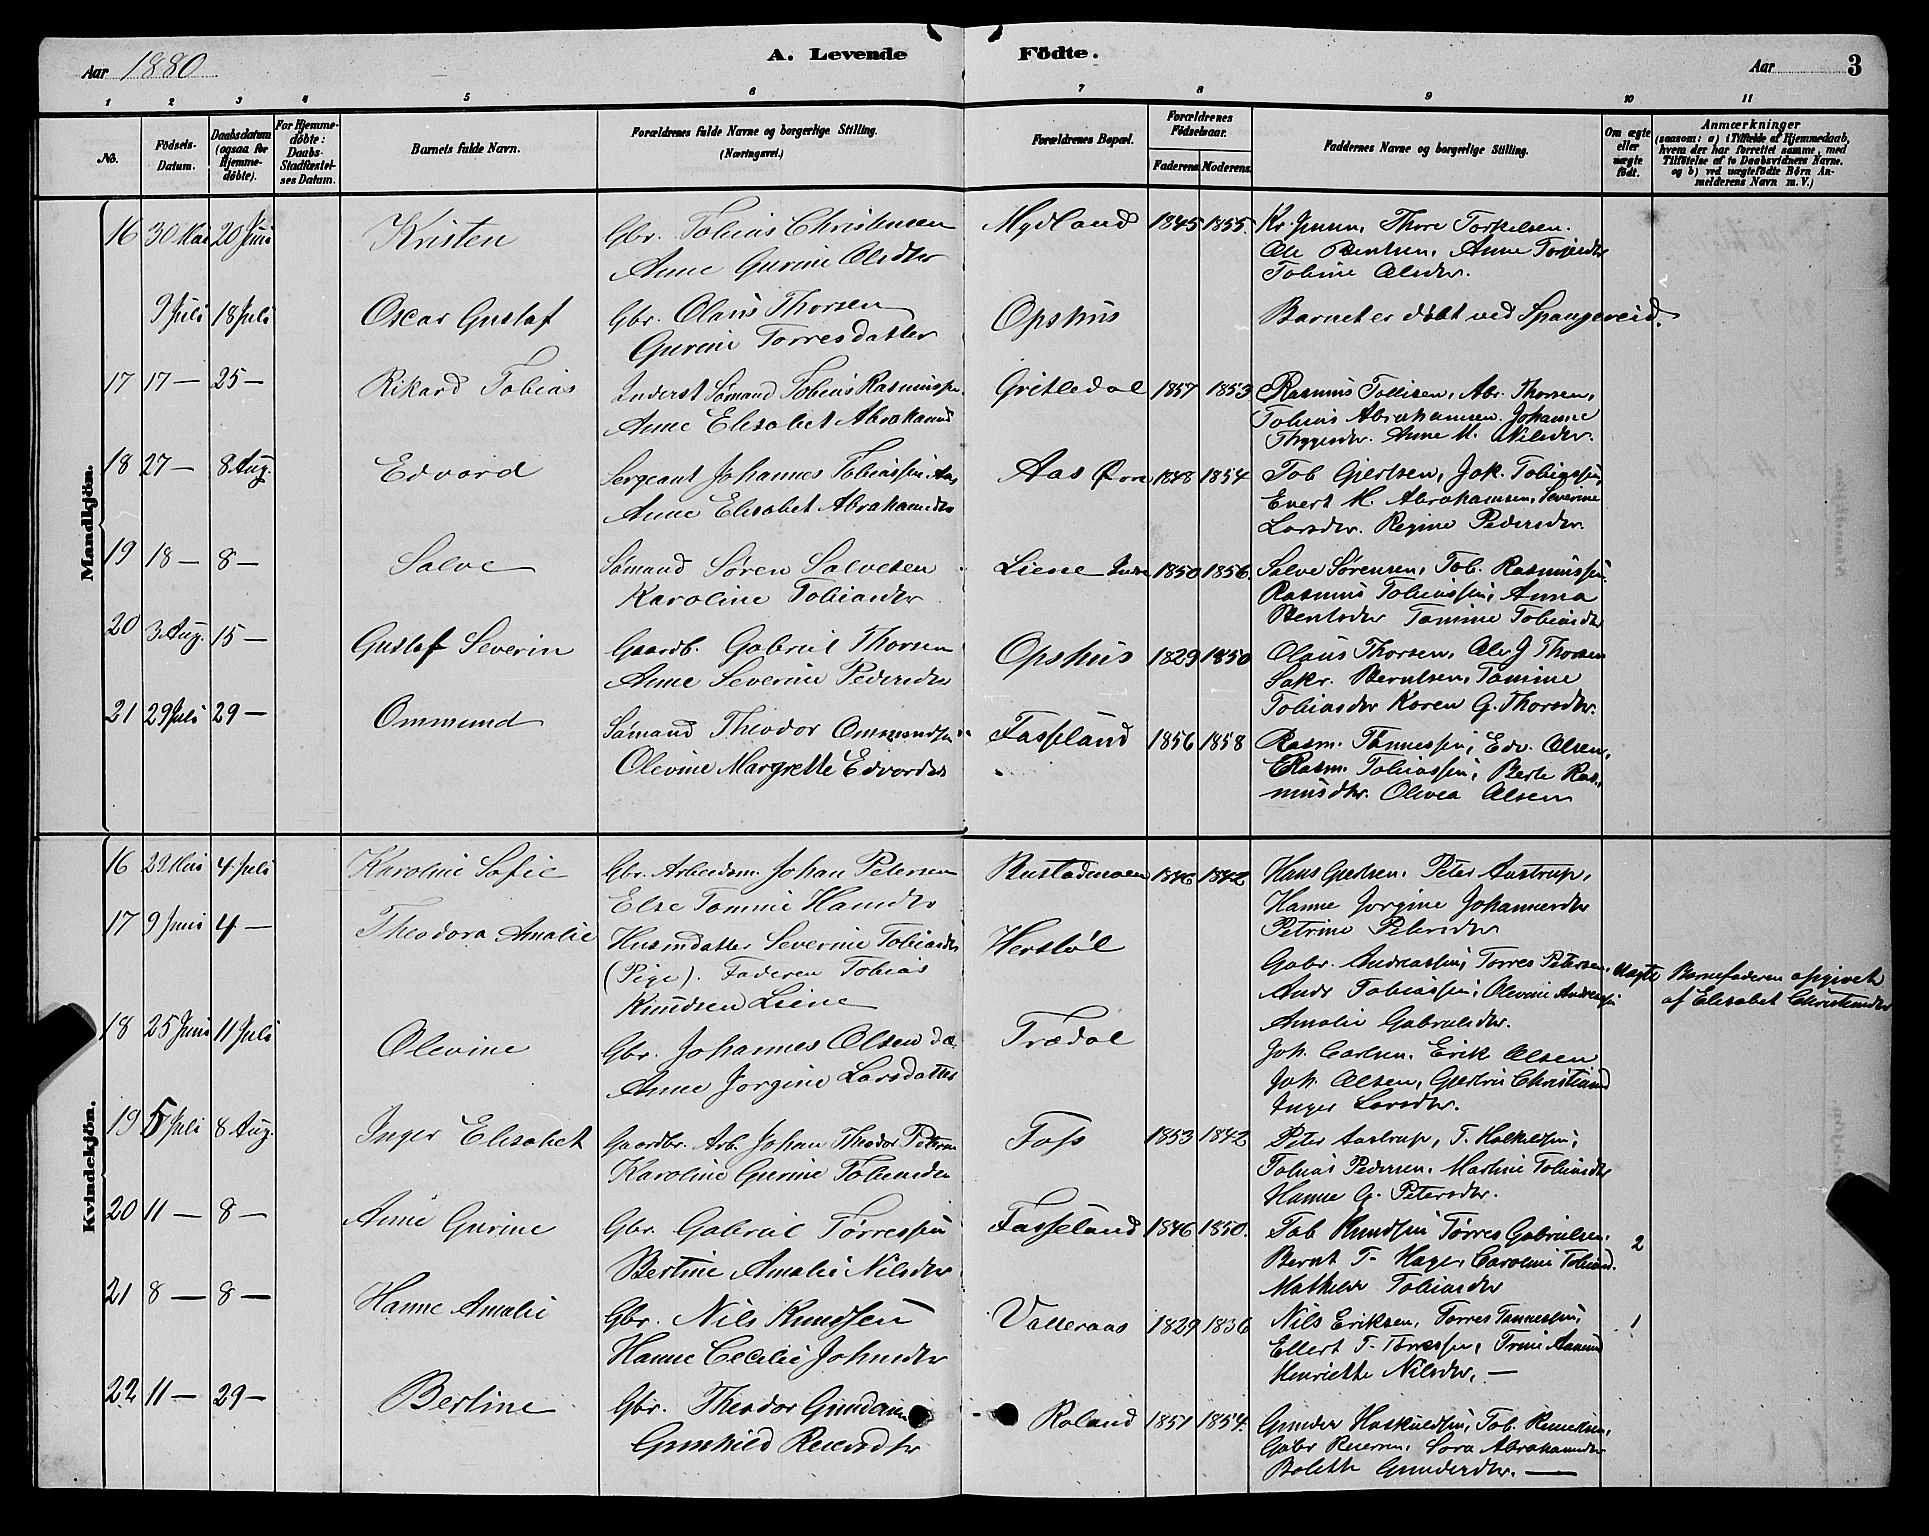 Aar 1880
A. Levende Födte.
Aar 3
1 2 3 4 5 6 7 8 9 10 11
No.
Födsels-Datum.
Daabsdatum (ogsaa for Hjemme-döbte).
For Hjemme-döbte: Daabs-Stadfæstel-ses Datum.
Barnets fulde Navn.
Forældrenes fulde Navne og borgerlige Stilling. (Næringsvei.)
Forældrenes Bopæl.
Forældrenes Födselsaar.
Faderens. Moderens.
Faddernes Navne og borgerlige Stilling.
Om ægte eller uægte födt.
Anmærkninger
(saasom: a) i Tilfælde af Hjemmedaab, hvem der har forrettet samme, med Tilföielse af to Daabsvidners Navne, og b) ved uægtefödte Börn Anmelderens Navn m. V.)
Mandkjön.
16 30 Mai 20 Juni Kristen Gbr. Tobias Christensen Mydland 1845 1855. Kr. Jensen, Thore Torkelsen.
Anne Gurine Olsdtr Ole Bentsen, Anne Torjesdtr
Tobine Olsdtr.
9 Juli 18 Juli Oscar Gustaf Gbr. Olaus Thorsen Opshus Barnet er döbt ved Spangereid.
Gurine Torresdatter
17 17 — 25 — Rikard Tobias Inderst Sømand Tobias Rasmussen Gritledal 1857 1853 Rasmus Tollisen, Abr. Thorsen,
Anne Elisabet Abrahamsd Tobias Abrahamsen. Johanne
Thygesdtr. Anne M. Nilsdtr.
18 27 — 8 Aug. Edvard Sergeant Johannes Tobiassen Aas Aas Øvre 1848 1854 Tob Gjertsen, Jok. Tobiassen,
Anne Elisabet Abrahamsdtr Evert M. Abrahamsen, Severine
Larsdtr. Regine Pedersdtr.
19 18 — 8 — Salve Sømand Søren Salvesen Liene Indre 1850 1856. Salve Sørensen, Tob. Rasmussen.
Karoline Tobiasdtr Rasmus Tobiassen, Anna
Bentsdtr Tomine Tobiasdtr
20 3 Aug. 15 — Gustaf Severin Gaardb. Gabriel Thorsen Opshus 1829 1850 Olaus Thorsen, Ole J Thorsen
Anne Severine Pedersdtr Sakr. Berntsen, Tomine
Tobiasdtr Karen G. Thorsdtr.
21 29 Juli 29 — Ommund Sømand Theodor Ommundsen Fasseland 1856 1858 Rasm. Tønnessen, Edv. Olsen,
Olevine Margrette Edvardsdtr Rasm. Tobiassen, Berte Ras-
musdtr. Olivea Olsen
Kvindekjön.
16 29 Mai 4 Juli Karoline Sofie Gbr. Arbeidsm. Johan Petersen Bustadmoen 1846 1842 Hans Gjertsen. Peter Aastrup,
Else Tomine Hansdtr Hanne Jorgine Johannesdtr
Petrine Petersdtr
17 9 Juni 4 — Theodora Amalie Husmdatter Severine Tobiasdtr Herstøl
(Pige). Faderen Tobias Gabr. Andreassen, Torres Petersen, Uægte Barnefaderen opgivet
Knudsen Liene Andr Tobiassen, Olevine Andreassen af Elisabet Christiansdtr
Amalie Gabrielsdtr.
18 25 Juni 11 Juli Olevine Gbr. Johannes Olsen Trædal
Anne Jorgine Larsdatter Joh. Carlsen. Erik Olsen
Joh. Olsen, Gjertrui Christiansd
Inger Larsdtr.
19 5 Juli 8 Aug. Inger Elisabet Gaardbr. Arb. Johan Theodor Petersen Foss 1853 1842 Peter Aastrup, T. Halkeldsen,
Karoline Gurine Tobiasdtr Tobias Pedersen, Martine Tobiasdtr
Hanne G. Petersdtr.
20 11 — 8 — Anne Gurine Gbr. Gabriel Tørressen Fasseland 1846 1850. Tob Knudsen Tørres Gabrielsen. 2
Bertine Amalie Nilsdtr Bernt T. Hager Caroline Tobiasd.
Mathilde Tobiasdtr
21 8 — 8 — Hanne Amalie Gbr. Nils Knudsen Valleraas 1829 1836 Nils Eriksen, Torres Tønnessen, 1
Hanne Cecilie Johnsdtr Ellert T. Tørressen, Trine Aanund
Henriette Nilsdtr. —
22 11 — 29 — Bertine Gbr. Theodor Gundersen Roland 1851 1854. Gunder Haskuldsen, Tob. Reinertsen,
Gunhild Reiersdtr Gabr Reiersen, Sara Abrahamsdtr
Bolette Gundersdtr. —